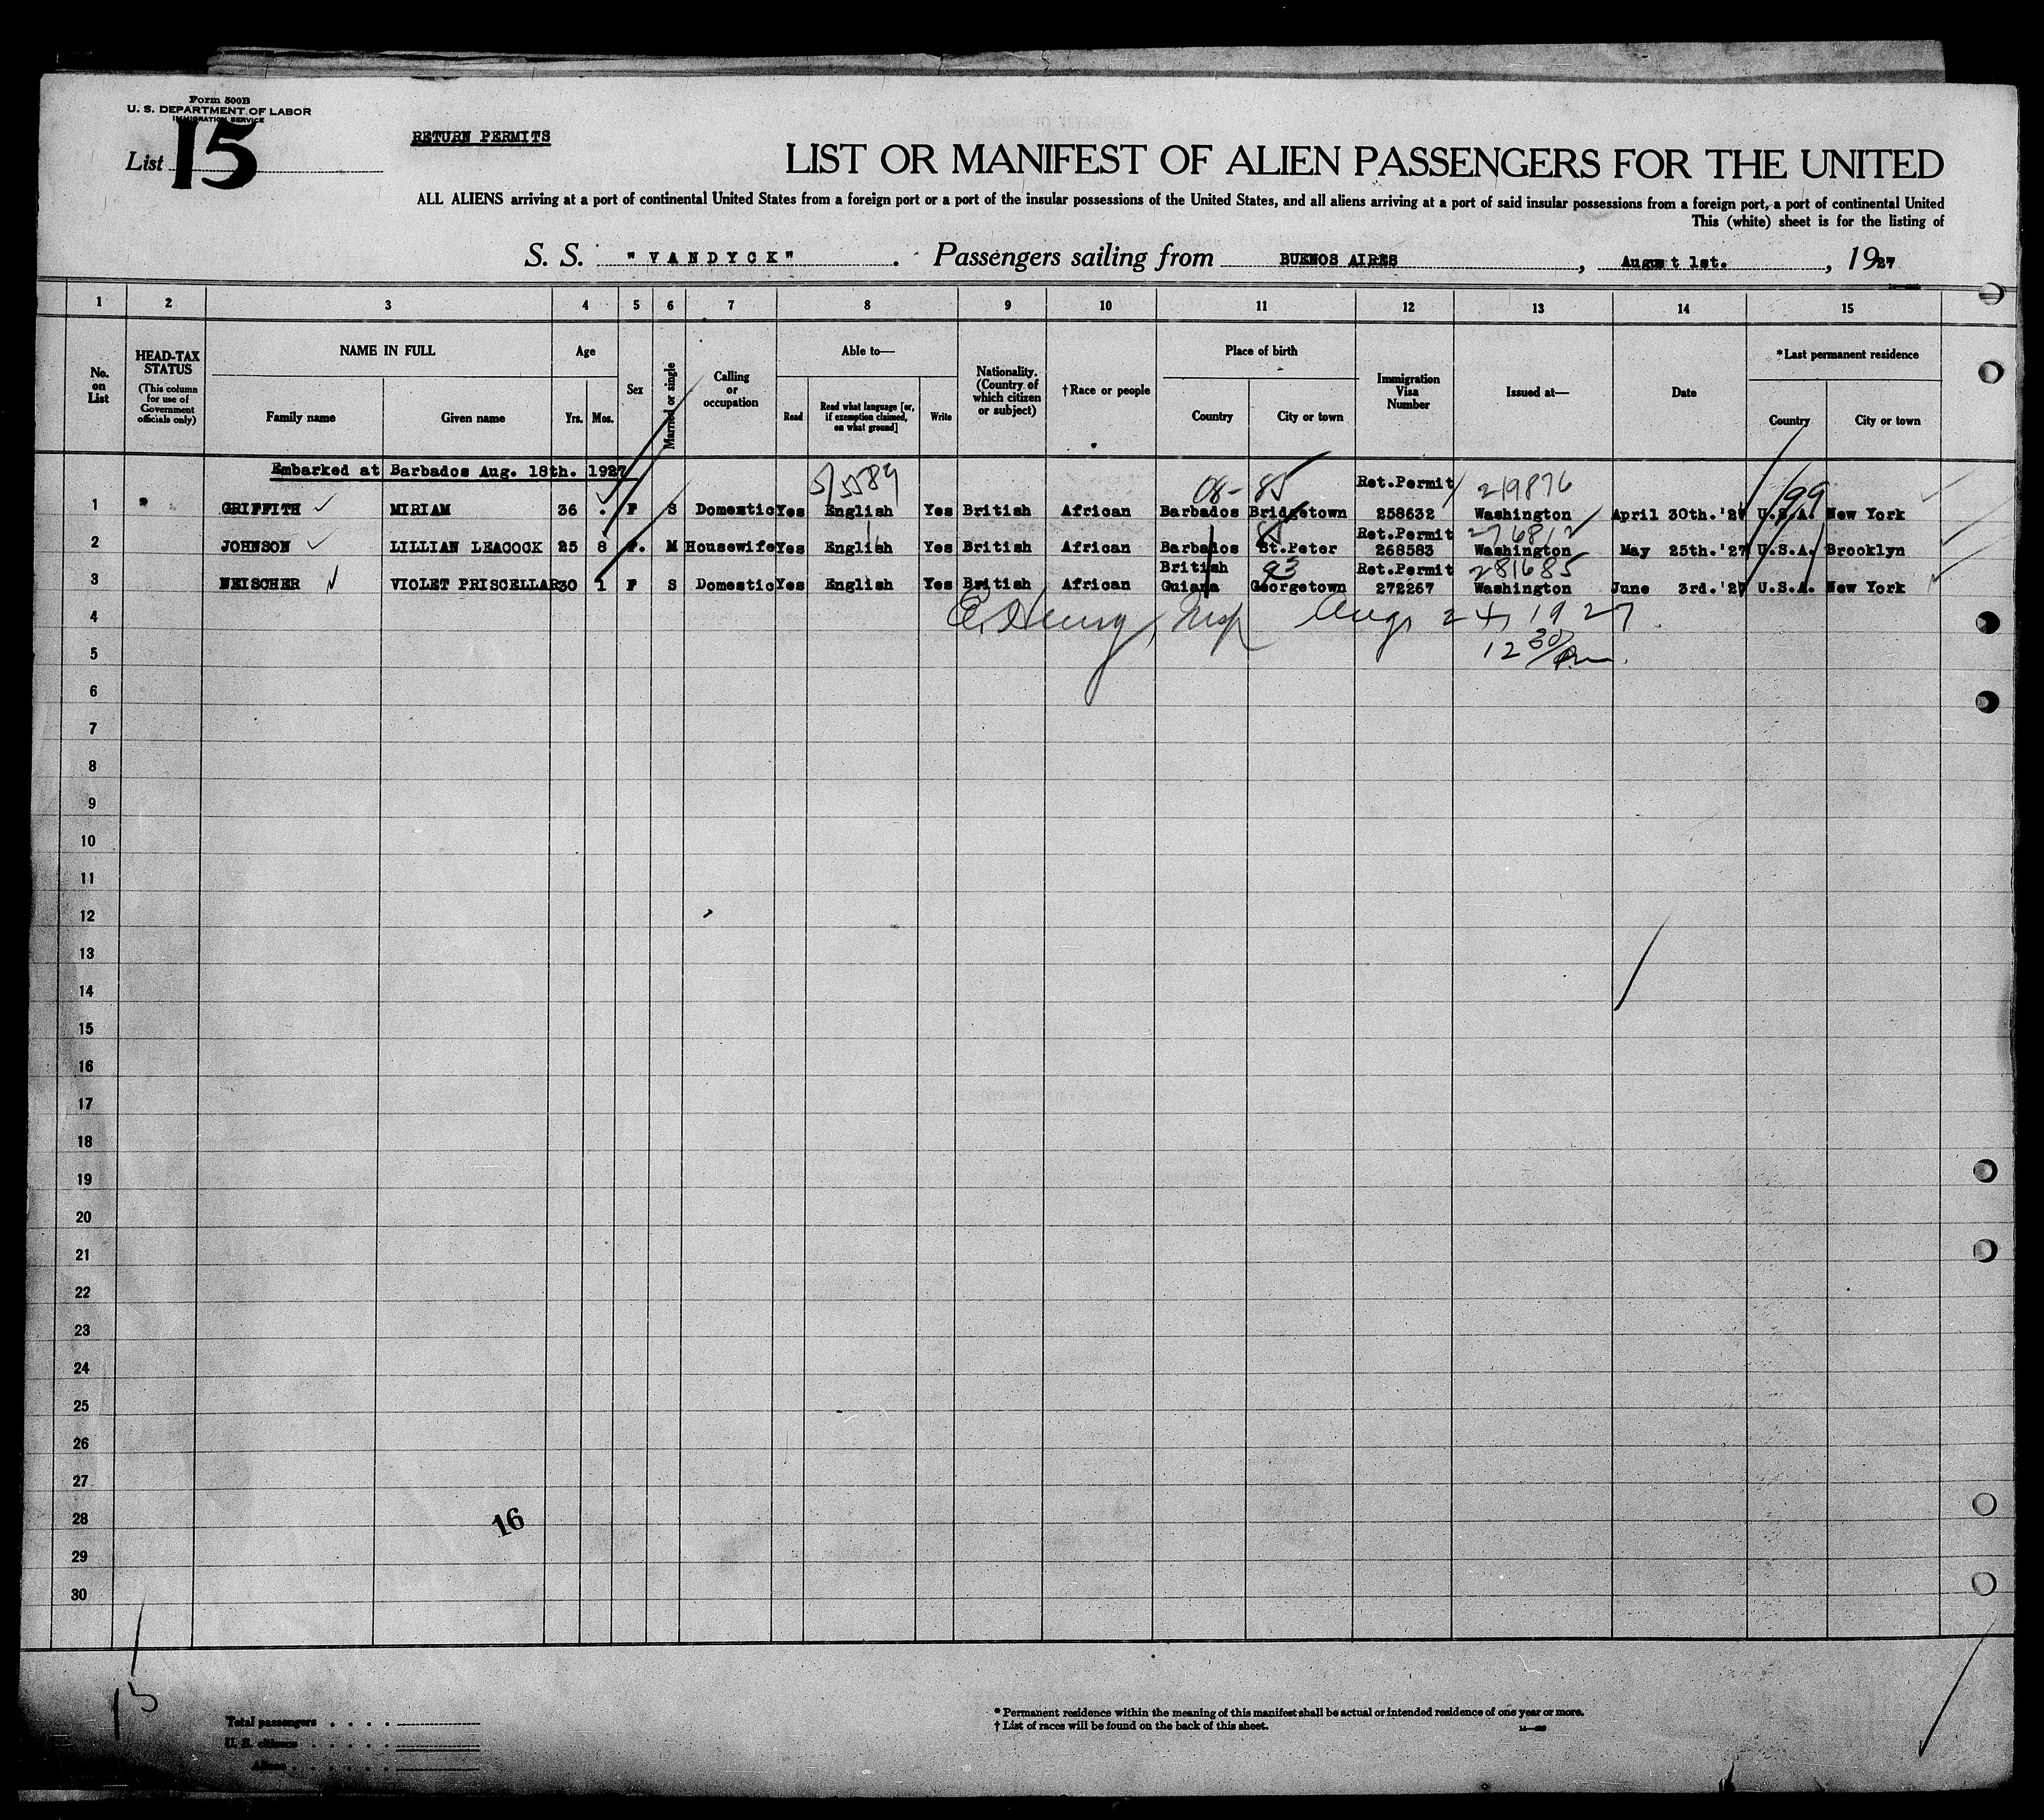 Form 500B
U. S. DEPARTMENT OF LABOR
IMMIGRATION SERVICE
List 15
RETURN PERMITS
LIST OR MANIFEST OF ALIEN PASSENGERS FOR THE UNITED
ALL ALIENS arriving at a port of continental United States from a foreign port or a port of the insular possessions of the United States, and all aliens arriving at a port of said insular possessions from a foreign port, a port of continental United
This (white) sheet is for the listing of
S. S. "VANDYCK" . Passengers sailing from BUENOS AIRES , August 1st. , 1927
1 2 3 4 5 6 7 8 9 10 11 12 13 14 15
No. on List
HEAD-TAX STATUS
(This column for use of Government officials only)
NAME IN FULL
Family name
Given name
Age
Yrs.
Mos.
Sex
Married or single
Calling or occupation
Able to—
Read
Read what language [or, if exemption claimed, on what ground]
Write
Nationality. (Country of which citizen or subject)
†Race or people
Place of birth
Country
City or town
Immigration Visa Number
Issued at—
Date
*Last permanent residence
Country
City or town
Embarked at Barbados Aug. 18th. 1927
5/5589
08-85
Ret.Permit 219876
199
1 GRIFFITH MIRIAM 36 . F S Domestic Yes English Yes British African Barbados Bridgetown 258632 Washington April 30th.'27 U.S.A. New York
85 Ret.Permit 276812
2 JOHNSON LILLIAN LEACOCK 25 8 F. M Housewife Yes English Yes British African Barbados St.Peter 268583 Washington May 25th.'27 U.S.A. Brooklyn
British 93 Ret.Permit 281685
3 NEISCHER VIOLET PRISCELLAR 30 1 F S Domestic Yes English Yes British African Guiana Georgetown 272267 Washington June 3rd.'27 U.S.A. New York
4 E. Henry, Insp Aug. 24, 1927
5 12 30/Pm.
6
7
8
9
10
11
12
13
14
15
16
17
18
19
20
21
22
23
24
25
26
27
28
16
29
30
15
Total passengers . . . .
U. S. citizens . . . . .
Aliens . . . . . .
* Permanent residence within the meaning of this manifest shall be actual or intended residence of one year or more.
† List of races will be found on the back of this sheet.